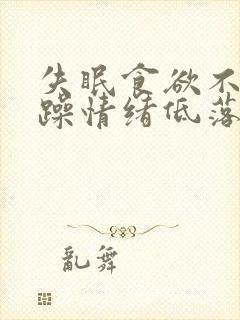 失眠食欲不
躁情绪低落
乱舞